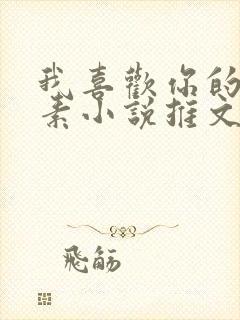 我喜歡你的
素小說推文
飛觞